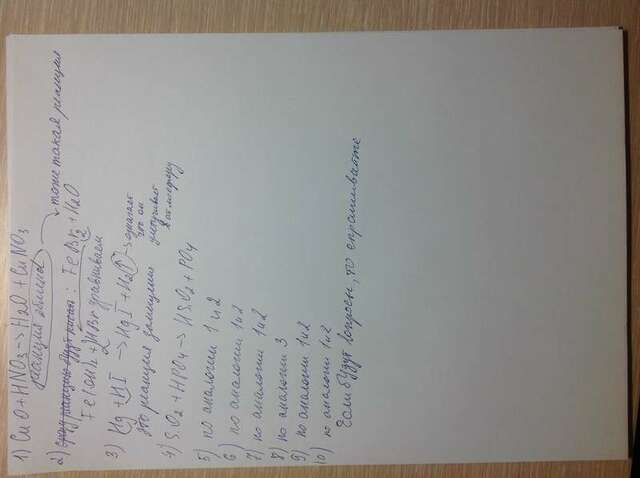 1) CuO + HNO3 → H2O + CuNO3
реакция обмена
тоже такая реакция
2) : FeBr2 + H2O
Fe(OH)2 + 2HBr уравниваем
3) Hg + HI → HgI + H2↑ → означает
что он
это реакция замещения улетучивает
в атмосферу
4) SiO2 + HPO4 → HSiO2 + PO4
5) по аналогии 1 и 2
6) по аналогии 1 и 2
7) по аналогии 1 и 2
8) по аналогии 3
9) по аналогии 1 и 2
10) по аналогии 1 и 2
Если будут вопросы, то спрашивайте